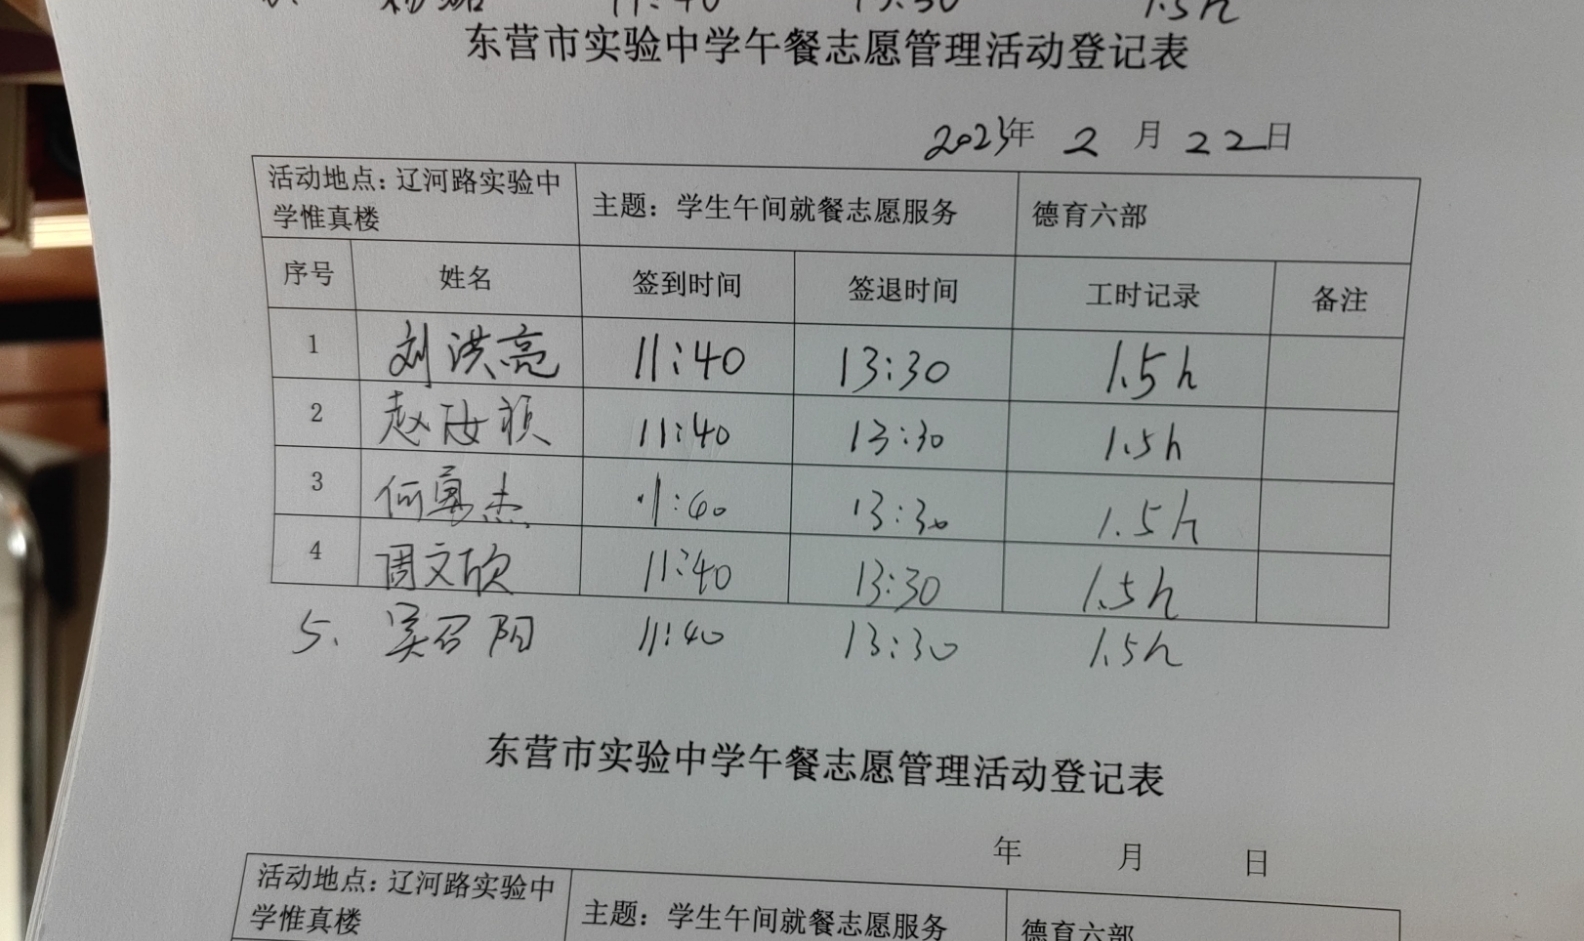 11:40 13:30 1.5h
东营市实验中学午餐志愿管理活动登记表
2023年 2 月 22日
活动地点：辽河路实验中学惟真楼 主题：学生午间就餐志愿服务 德育六部
序号 姓名 签到时间 签退时间 工时记录 备注
1 刘洪亮 11:40 13:30 1.5h
2 赵汝祯 11:40 13:30 1.5h
3 何勇杰 11:40 13:30 1.5h
4 周文欣 11:40 13:30 1.5h
5. 吴召阳 11:40 13:30 1.5h
东营市实验中学午餐志愿管理活动登记表
年 月 日
活动地点：辽河路实验中学惟真楼 主题：学生午间就餐志愿服务 德育六部